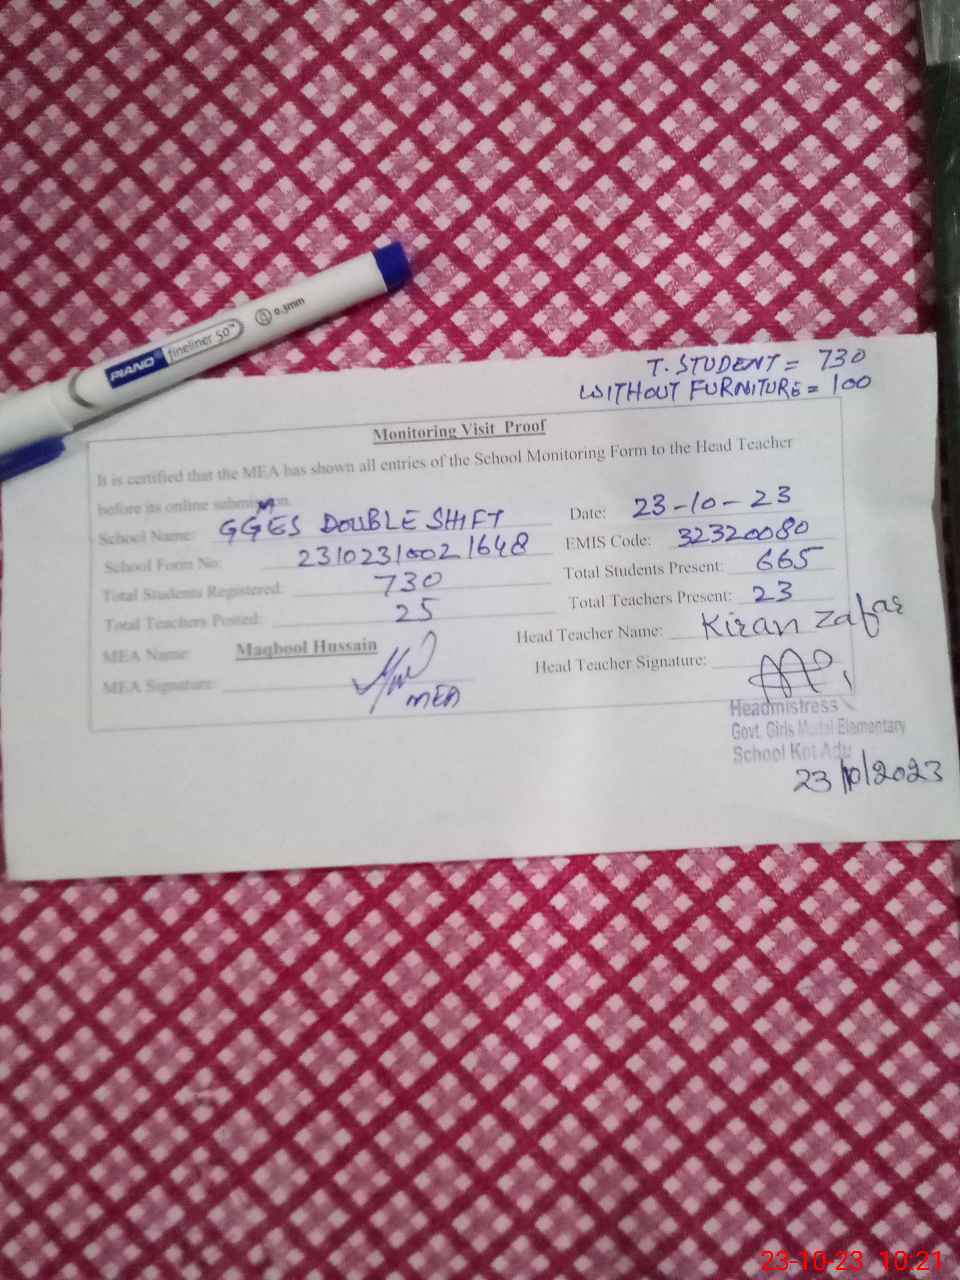 PIANO fineliner 50™ 0.3mm
T. STUDENT = 730
WITHOUT FURNITURE = 100
Monitoring Visit Proof
It is certified that the MEA has shown all entries of the School Monitoring Form to the Head Teacher
before its online submission.
School Name: GGMES DOUBLE SHIFT Date: 23-10-23
School Form No: 23102310021648 EMIS Code: 32320080
Total Students Registered: 730 Total Students Present: 665
Total Teachers Posted: 25 Total Teachers Present: 23
MEA Name: Maqbool Hussain Head Teacher Name: Kiran Zafar
MEA Signature: MEA Head Teacher Signature:
Headmistress
Govt. Girls Model Elementary
School Kot Adu
23/10/2023
23-10-23 10:21